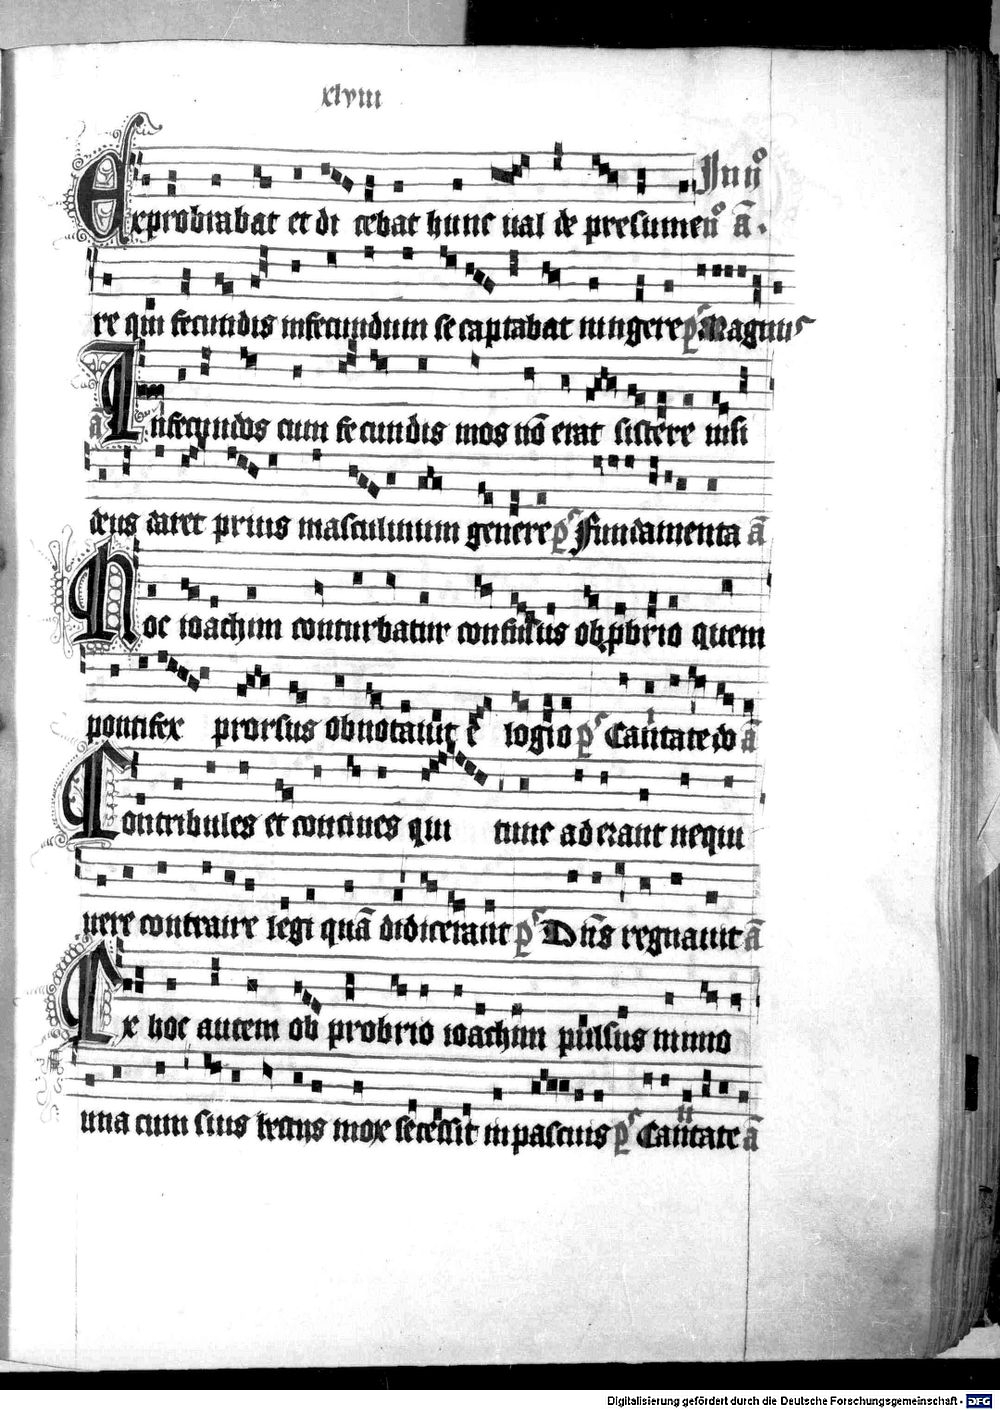 xlviii
In iiº
Exprobrabat et di cebat hunc ual de presumenº ā.
re qui fecundis infecundum se captabat iungere pˢ Magnus
ā Infecundos cum fecundis mos nō erat sistere nisi
deus daret prius masculinum genere pˢ Fundamenta ā
Hoc ioachim conturbatur confusus ob ꝓbrio quem
pontifex prorsus obnotauit e logio pˢ Cantate do ā
Contribules et contines qui tunc aderant nequi
uere contraire legi quā didicerant pˢ Dn̄s regnauit ā
Ex hoc autem ob probrio ioachim pulsus nimio
una cum suis tectus mox secessit in pascuis pˢ Cantate ii ā
Digitalisierung gefördert durch die Deutsche Forschungsgemeinschaft - DFG